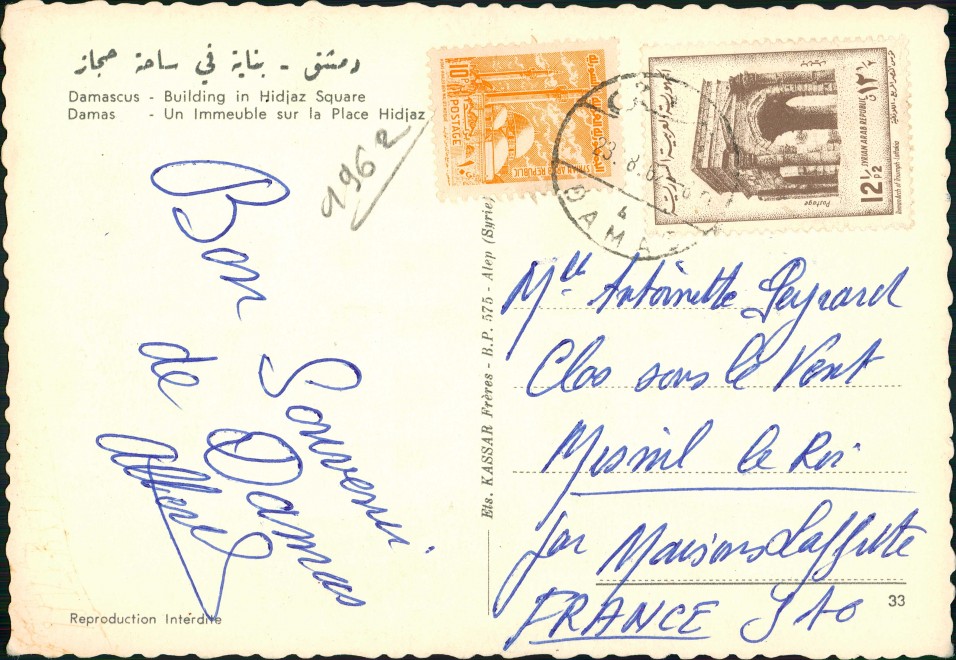 دمشق - بناية في ساحة حجاز
Damascus - Building in Hidjaz Square
Damas - Un Immeuble sur la Place Hidjaz
1962
Bon Souvenir
de Damas
SYRIAN ARAB REPUBLIC
POSTAGE
10 P
الجمهورية العربية السورية
SYRIAN ARAB REPUBLIC
12½ P2
Postage
DAMAS
4
Ets. KASSAR Frères - B.P. 575 - Alep (Syrie)
Mlle Antoinette Peyrard
Clos sous le Vent
Mesnil le Roi
par Maisons Laffitte
FRANCE S&O
33
Reproduction Interdite